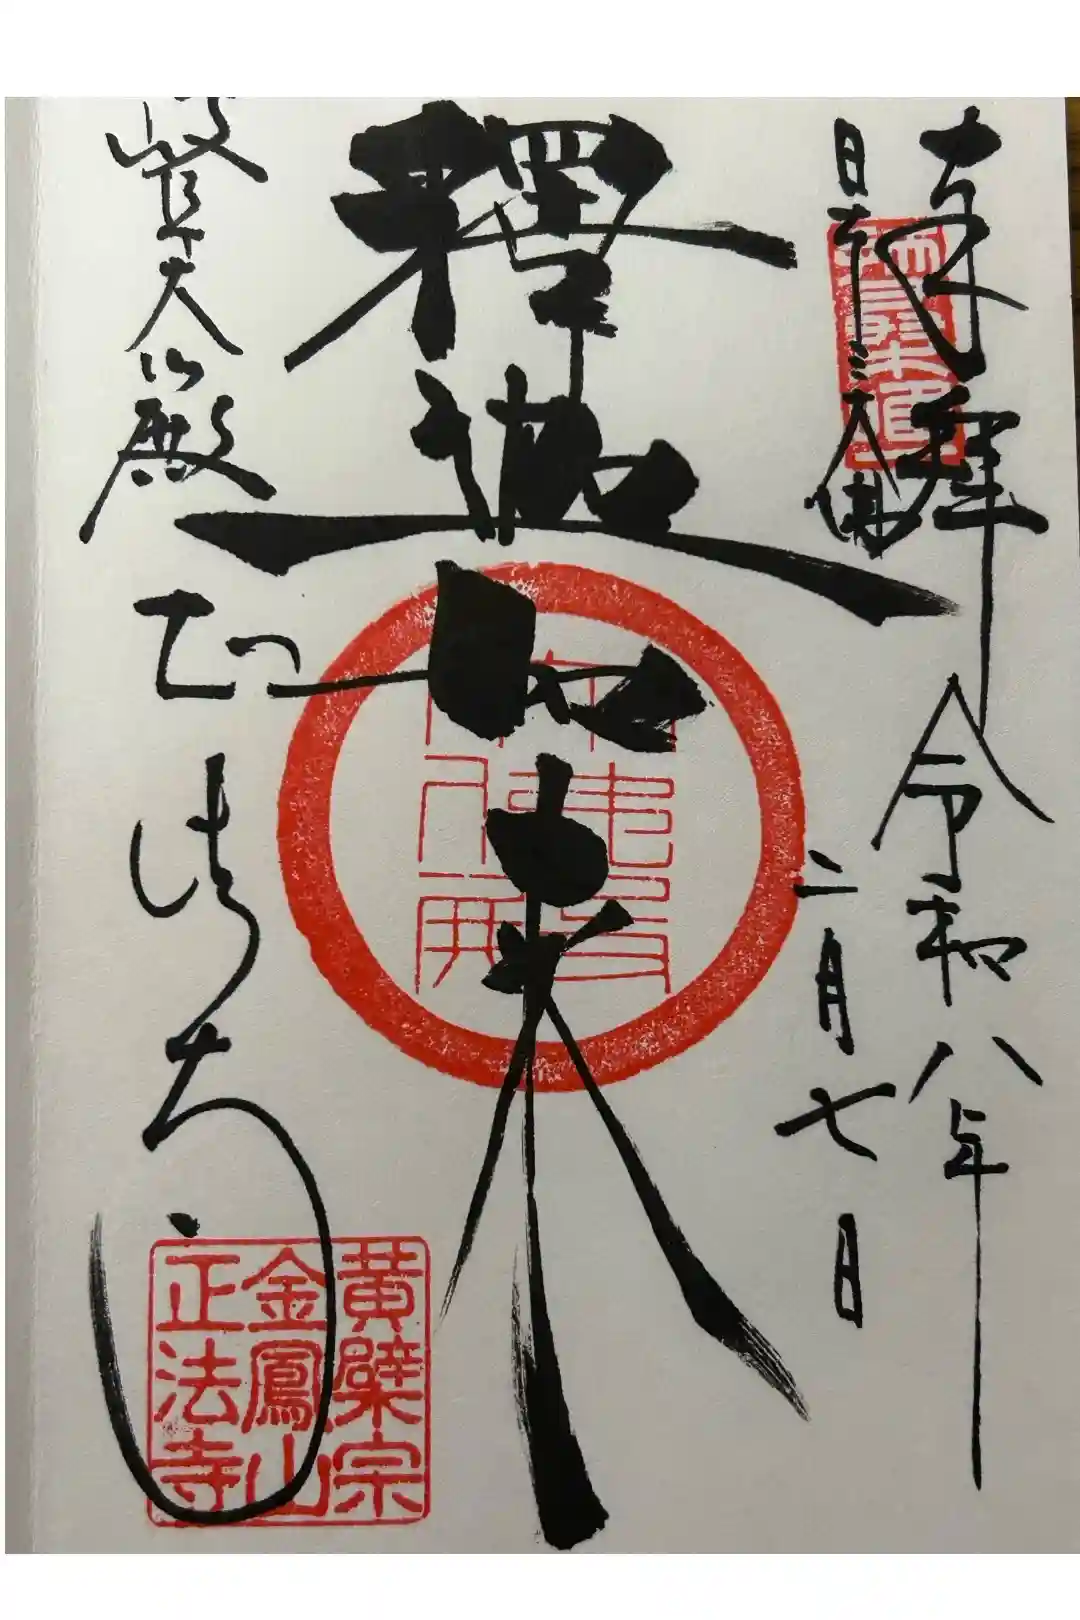 奉拝 令和八年
日本三大佛
二月七日
釋迦如来
岐阜大仏殿
正法寺
黄檗宗
金鳳山
正法寺